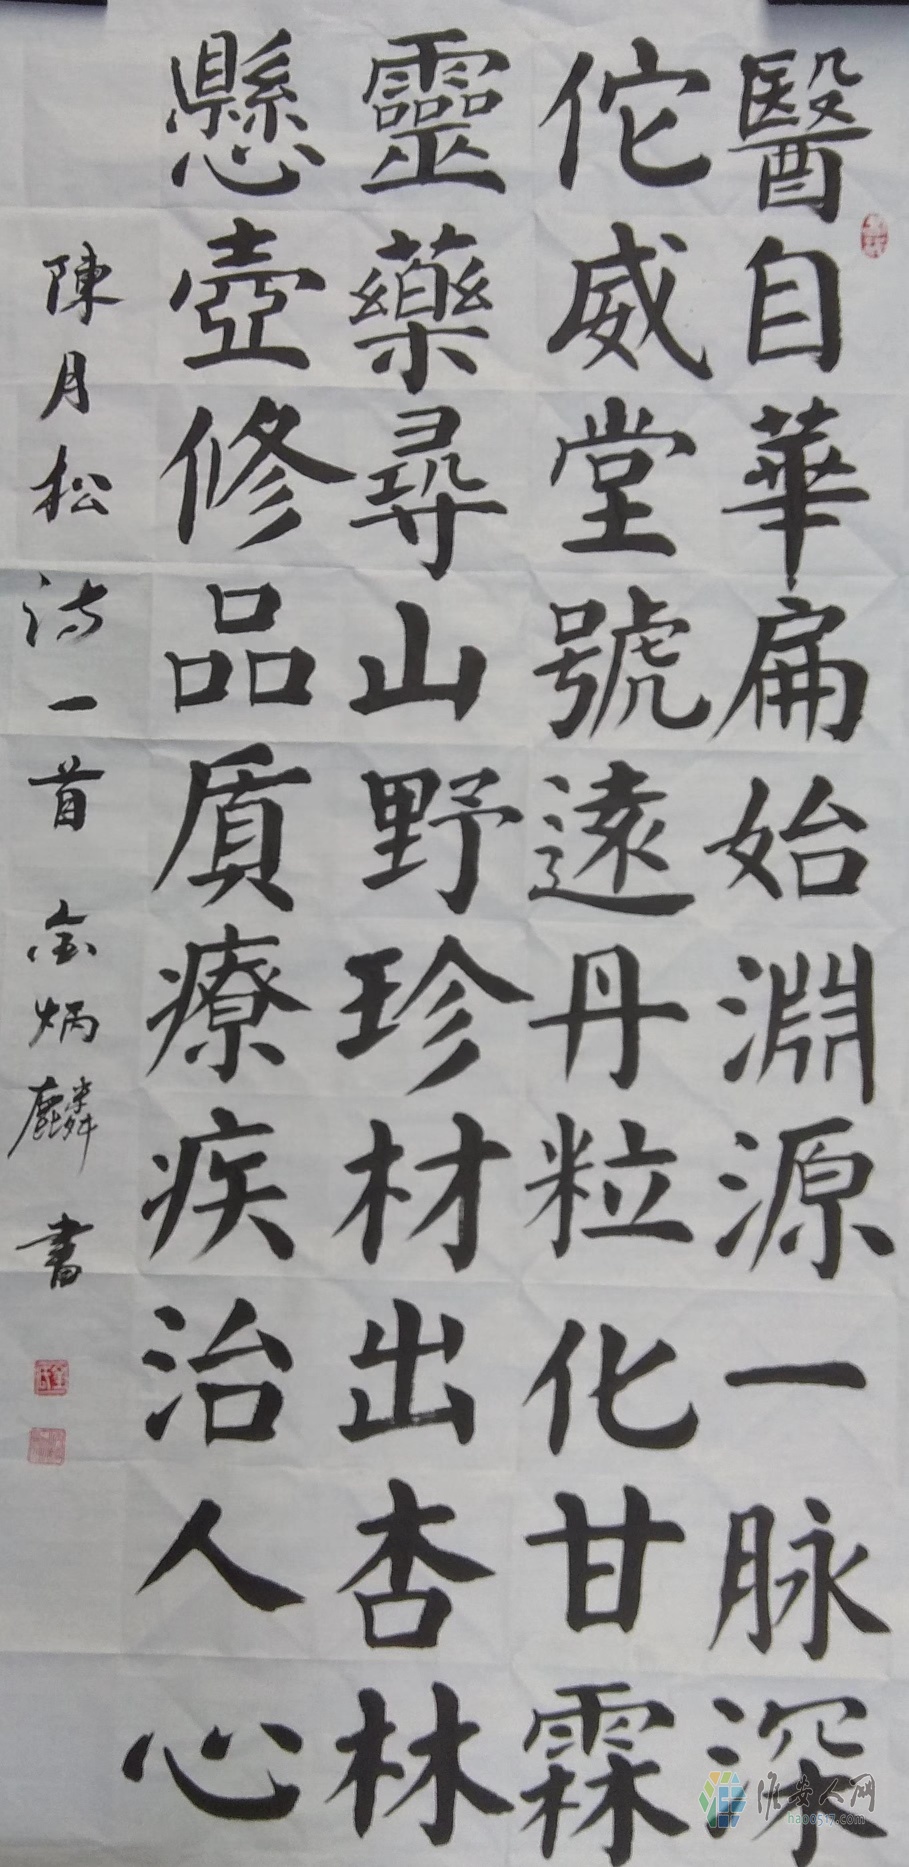 醫自華扁始淵源一脉深
佗威堂號遠丹粒化甘霖
靈藥尋山野珍材出杏林
懸壺修品質療疾治人心
陳月松詩一首金炳麟書
淮安人网
ha00517.com